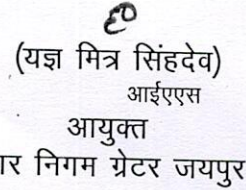 (यज्ञ मित्र सिंहदेव)
आईएएस
आयुक्त
निगम ग्रेटर जयपुर